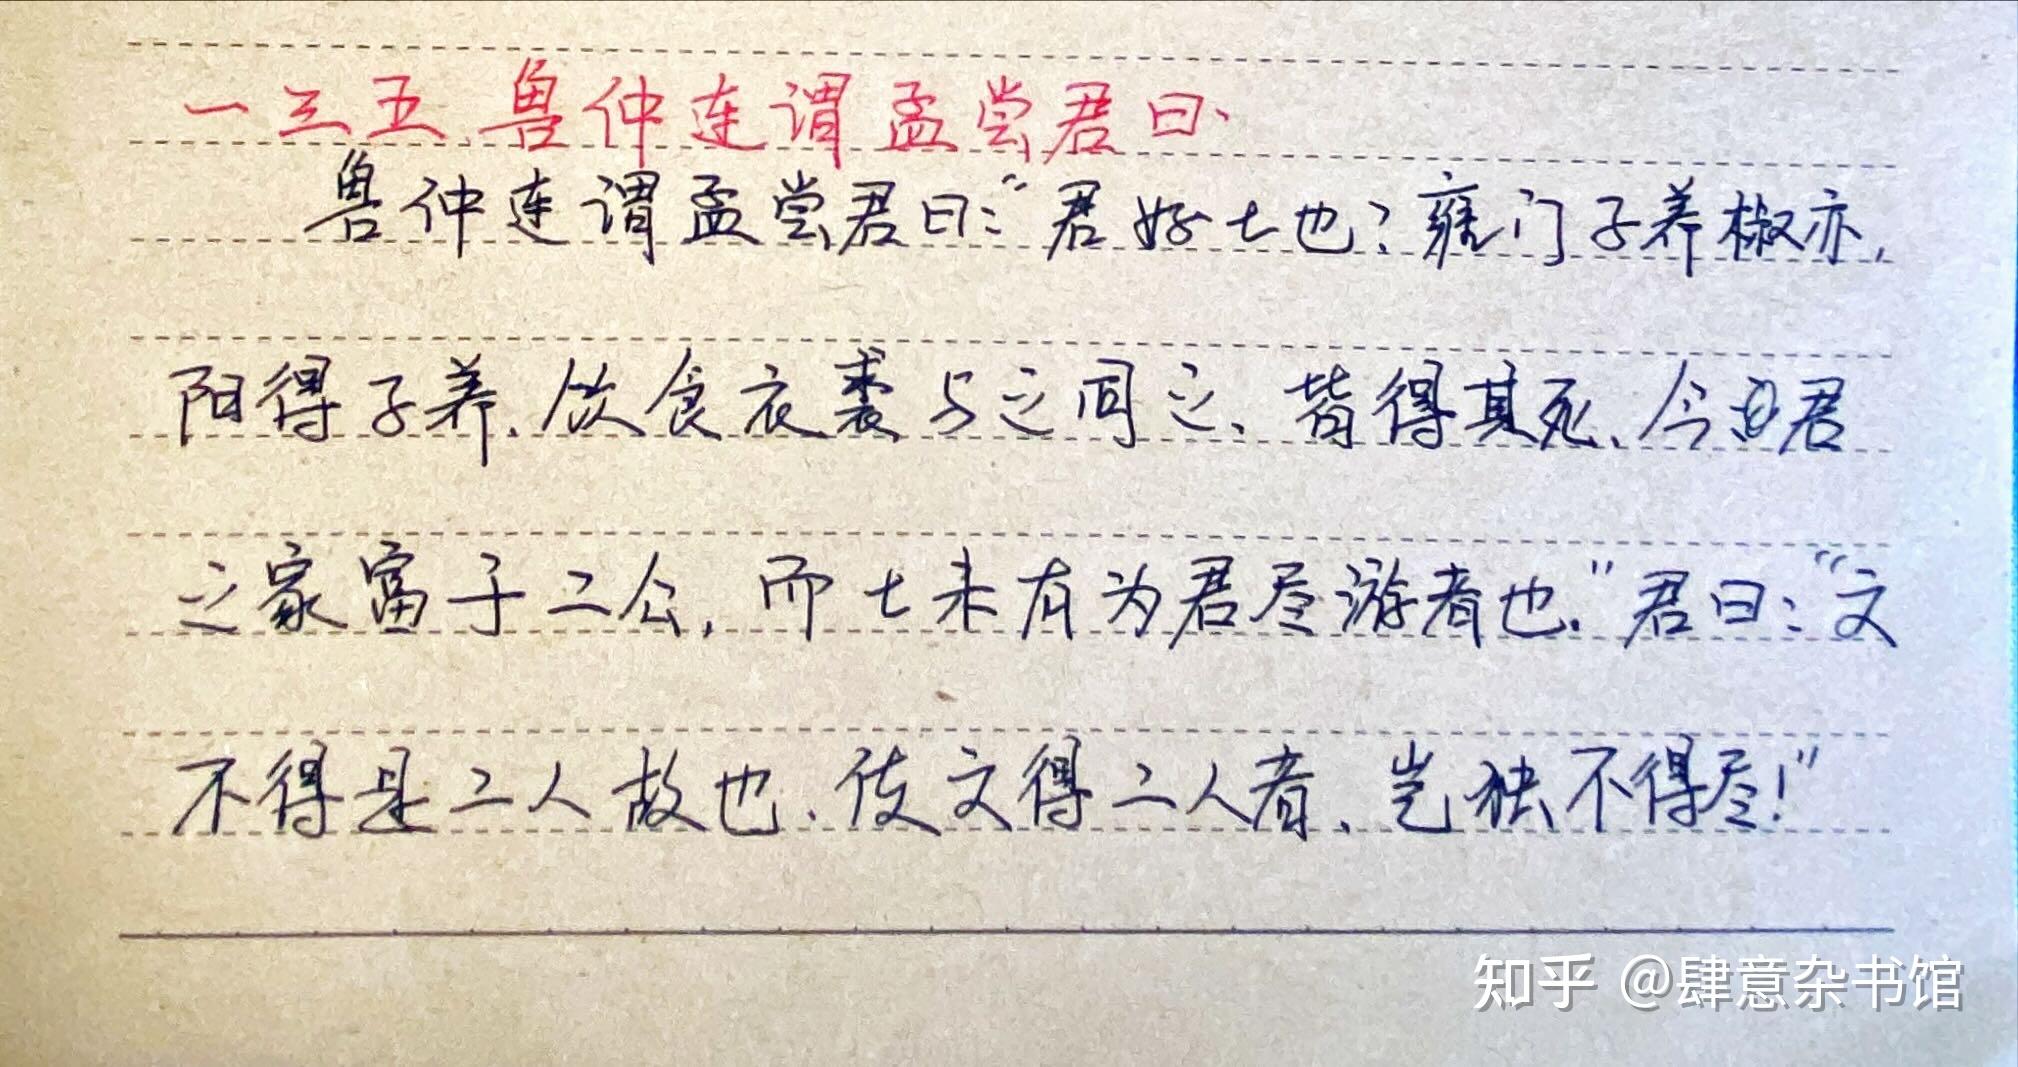 一三五、鲁仲连谓孟尝君曰、
鲁仲连谓孟尝君曰：“君好士也？雍门子养椒亦，
阳得子养、饮食衣裘与之同之、皆得其死、今君
之家富于二公，而士未有为君尽游者也。”君曰：“文
不得是二人故也、使文得二人者、岂独不得尽！”
知乎 @肆意杂书馆